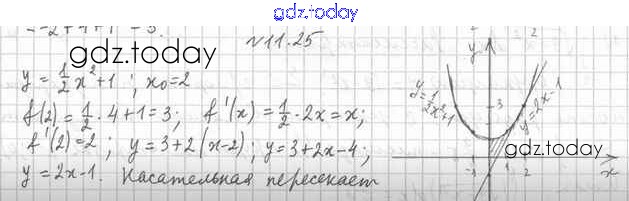 gdz.today
-2+4+1 = 3.
№11.25
gdz.today
y = 1/2 x² + 1 ; x₀ = 2
f(2) = 1/2 · 4 + 1 = 3; f'(x) = 1/2 · 2x = x;
f'(2) = 2 ; y = 3 + 2(x-2) ; y = 3 + 2x - 4 ;
y = 2x - 1. Касательная пересекает
2
y
y = 1/2 x² + 1
y = 2x - 1
3
gdz.today
1 2 x
-1